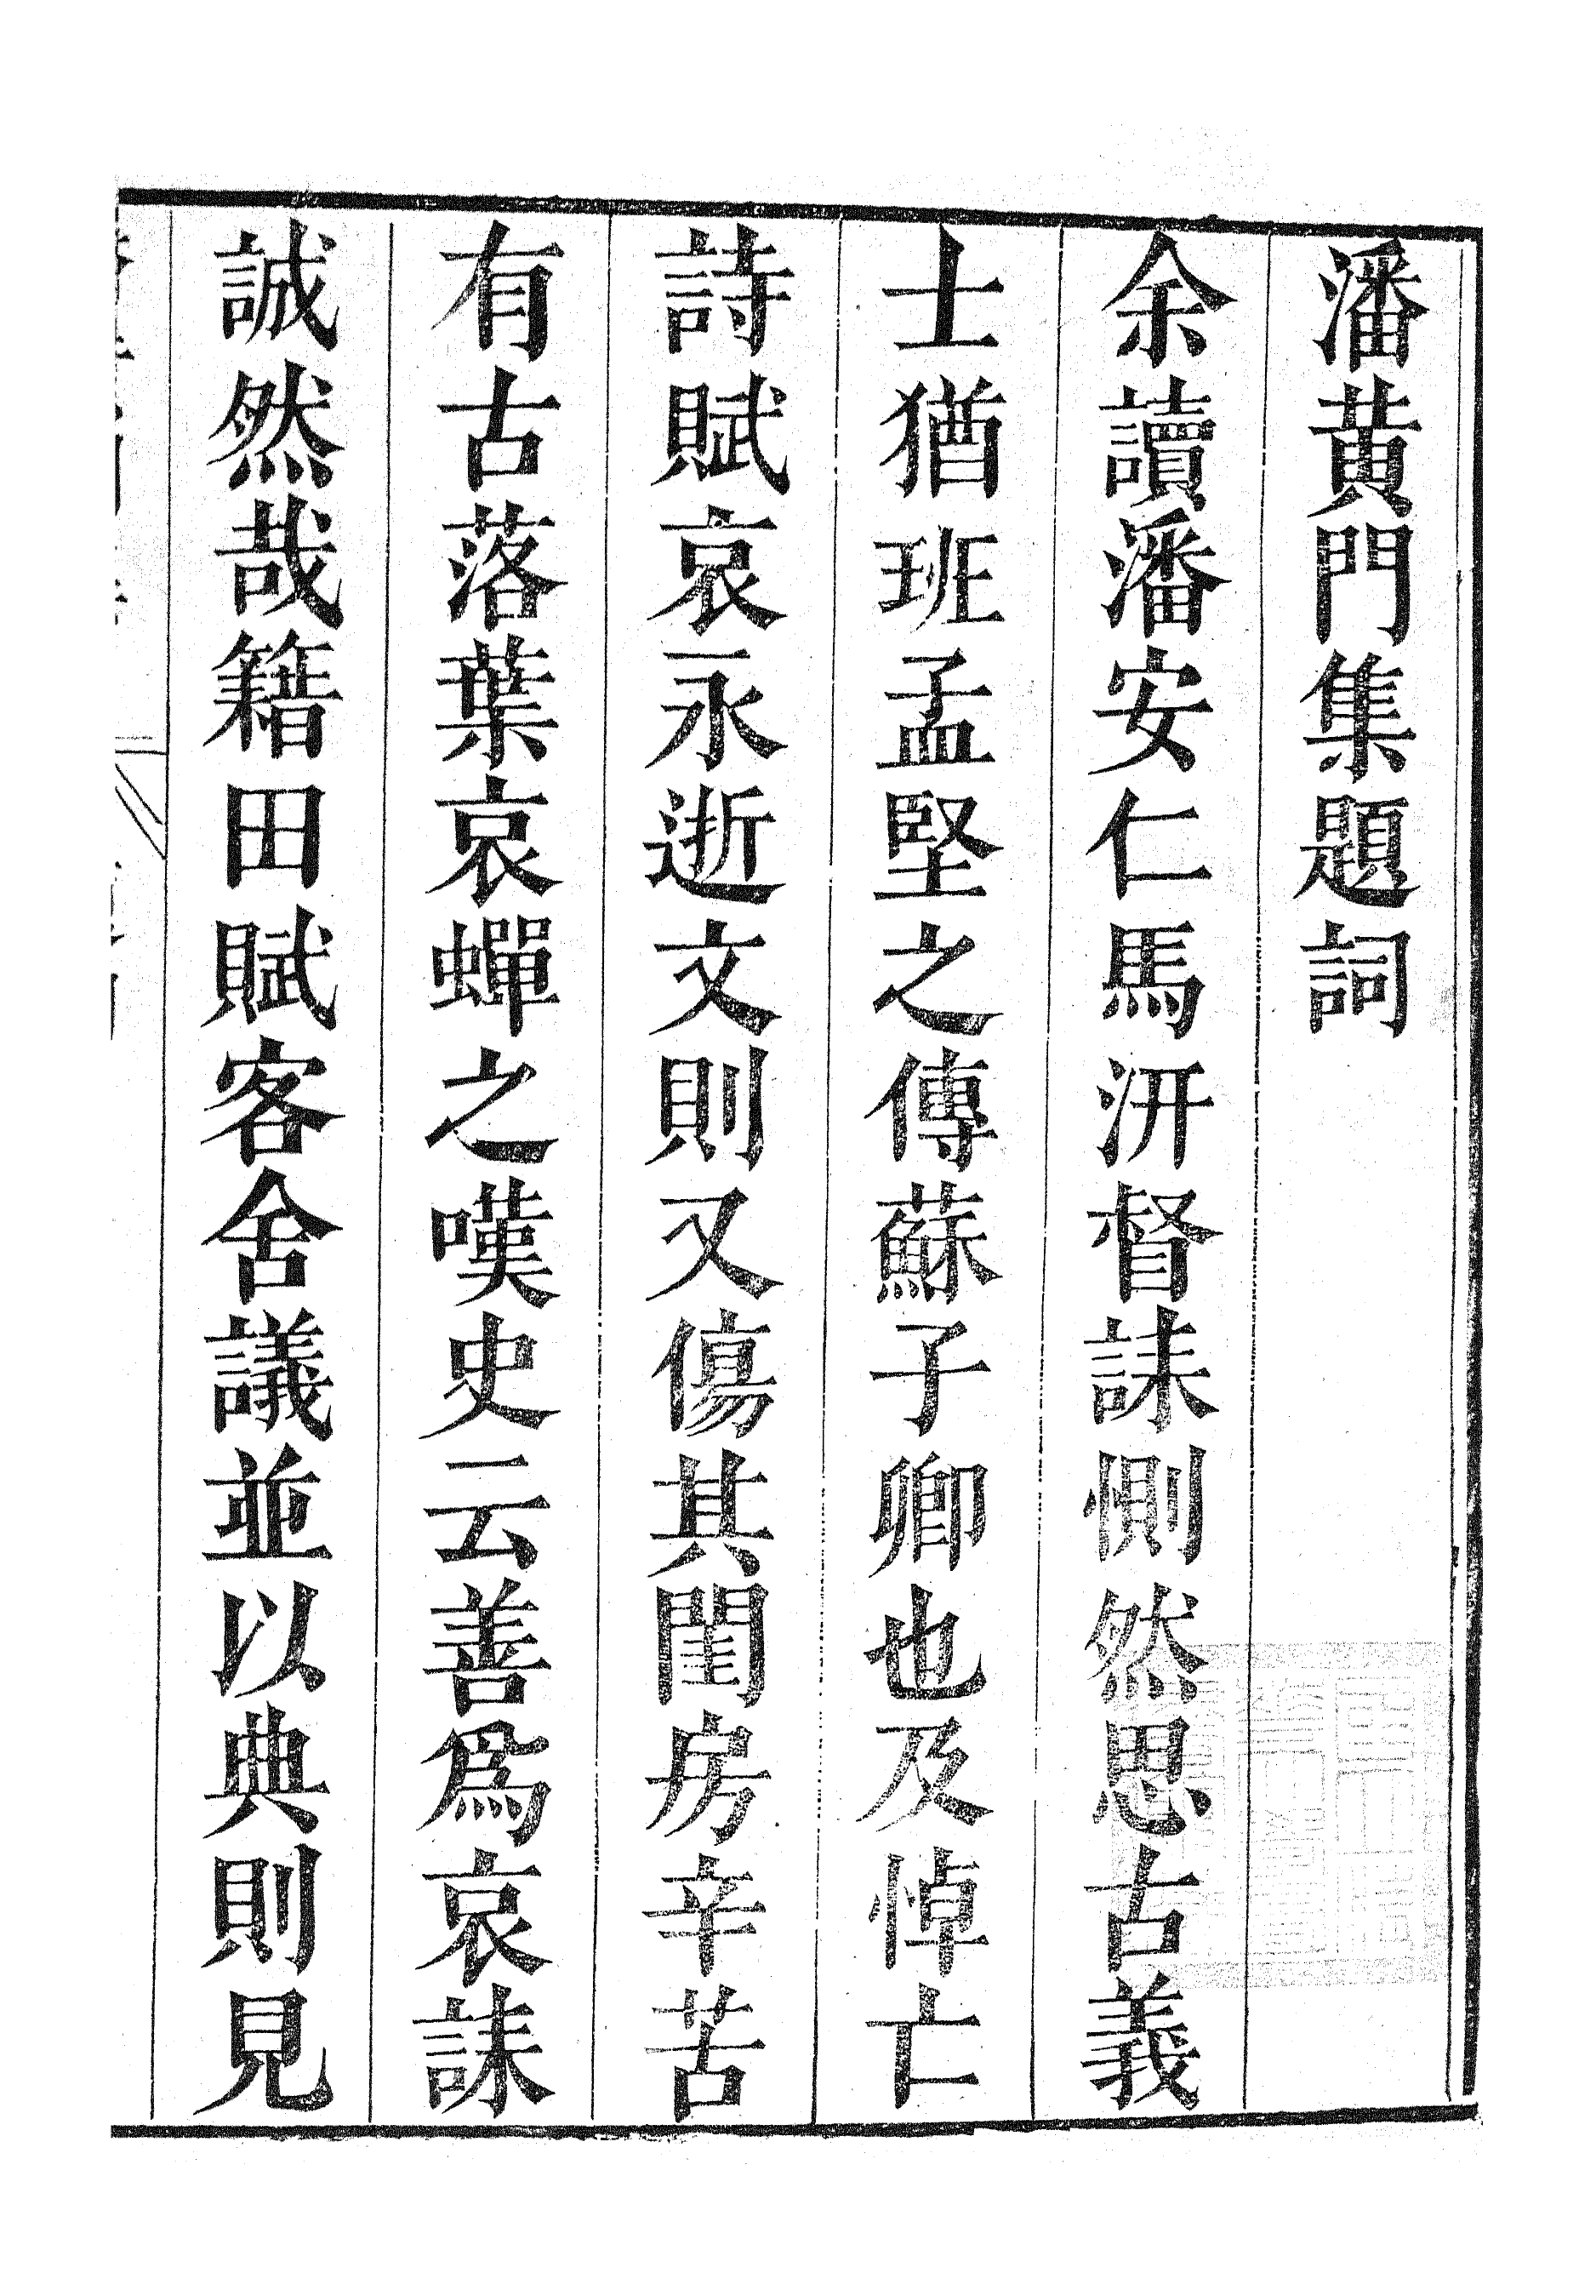 潘黄門集題詞
余讀潘安仁馬汧督誄惻然思古義
士猶班孟堅之傳蘇子卿也及悼亡
詩賦哀永逝文則又傷其閨房辛苦
有古落葉哀蟬之嘆史云善爲哀誄
誠然哉籍田賦客舍議並以典則見